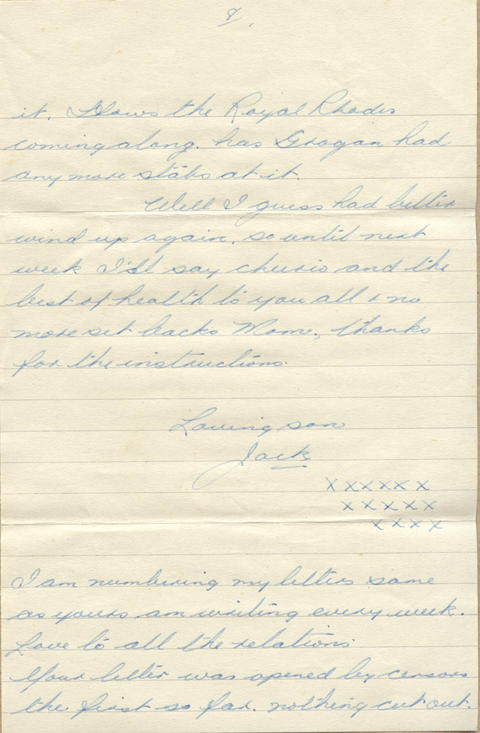 8.
it. Hows the Royal Rhodes
coming along. has Grogan had
any more stabs at it.
Well I guess had better
wind up again, so until next
week I'll say cheerio and the
best of health to you all & no
more set backs Mome, thanks
for the instructions.
Loving son
Jack
xxxxxx
xxxxx
xxxx
I am numbering my letters same
as yours am writing every week.
Love to all the relations
Your letter was opened by censors
the first so far. nothing cut out.